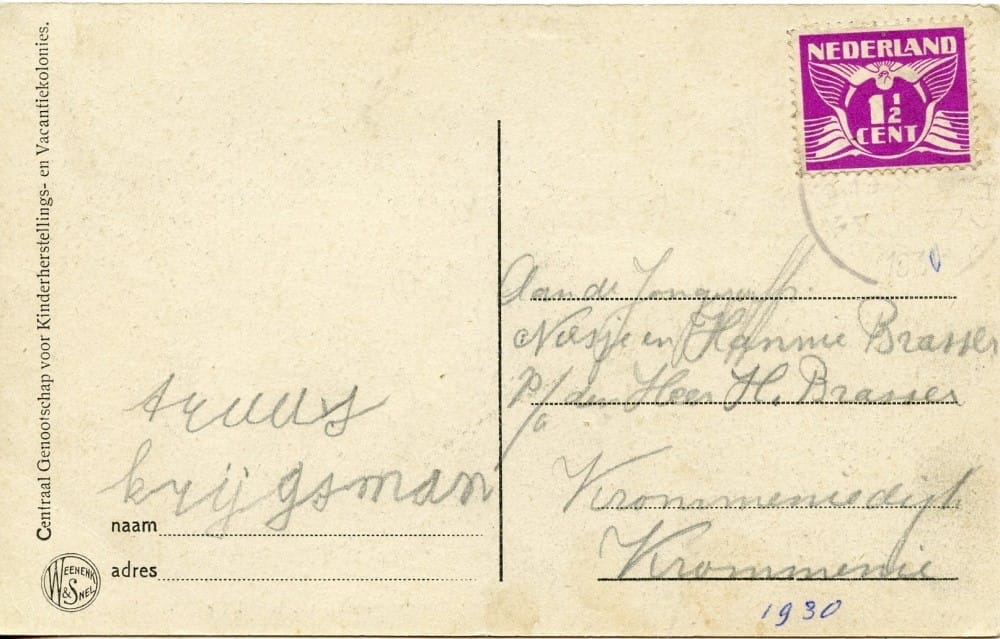 Centraal Genootschap voor Kinderherstellings- en Vacantiekolonies.
NEDERLAND
1½
CENT
1930
Aan de Jongejufr.
Niesje en Hannie Brasser
P/a den Heer H. Brasser
Krommeniedijk
Krommenie
1930
truus
krijgsman
naam
adres
WEENENK
& SNEL